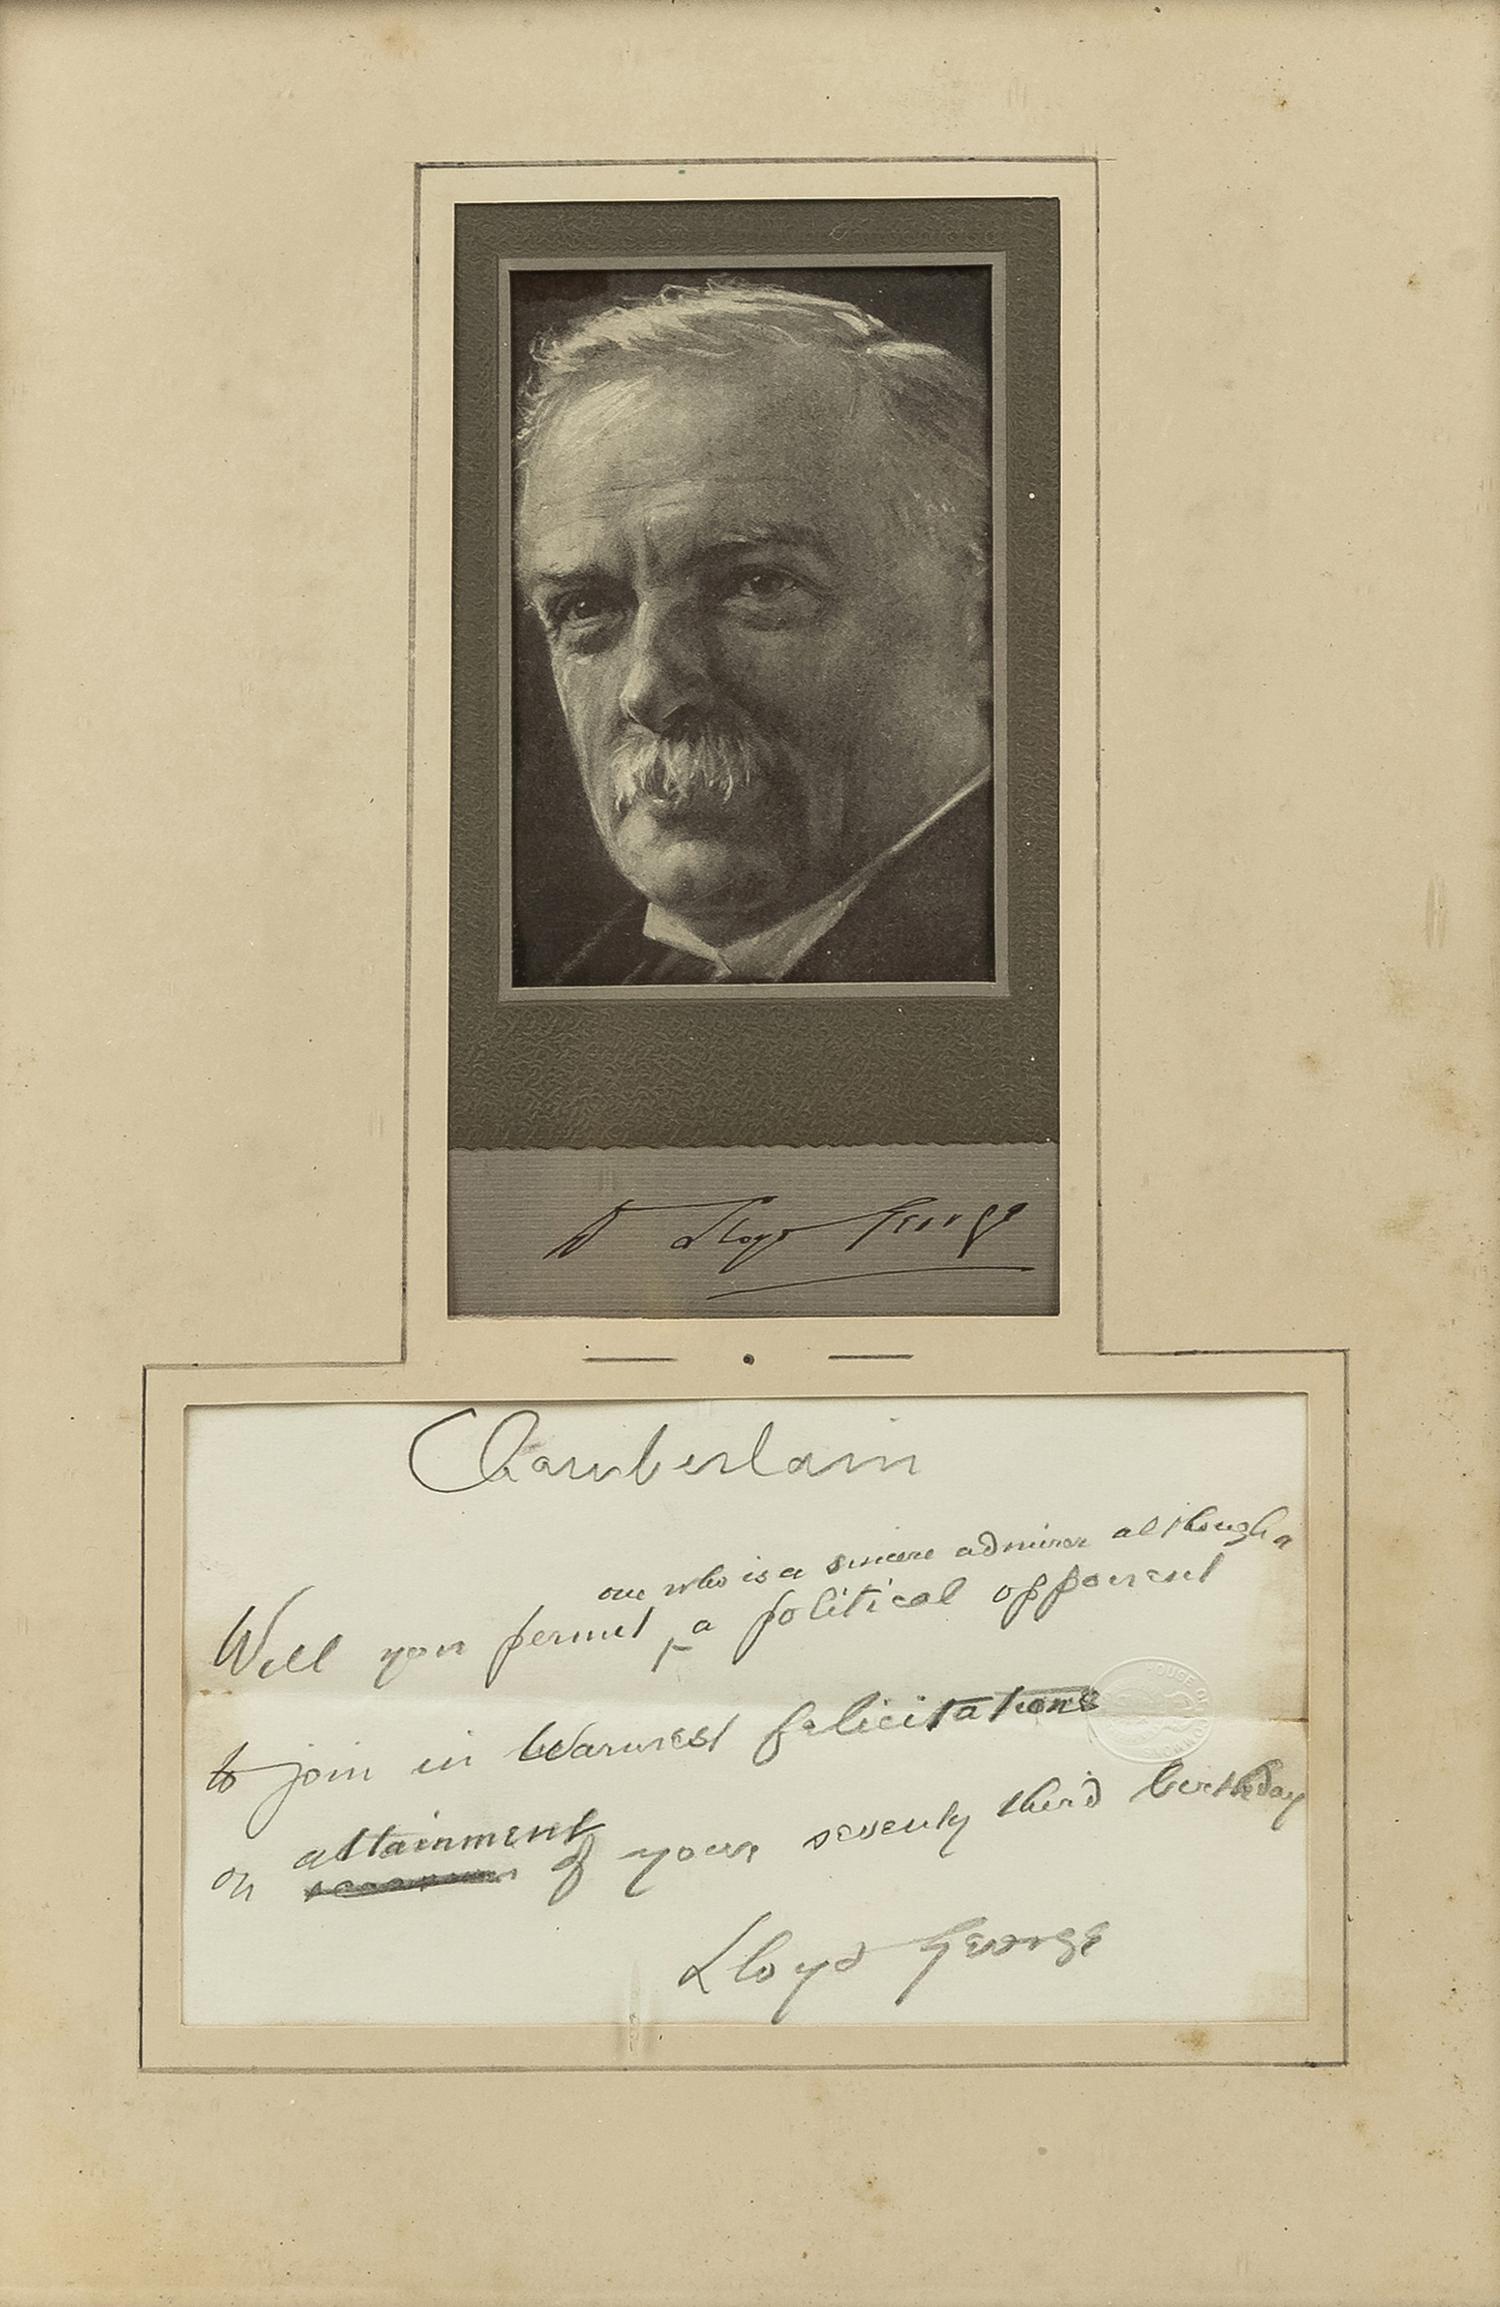 D Lloyd George
Chamberlain
one who is a sincere admirer although a
Will you permit ^ a political opponent
to join in warmest felicitations
HOUSE OF COMMONS
attainment
on of your seventy third birthday
Lloyd George